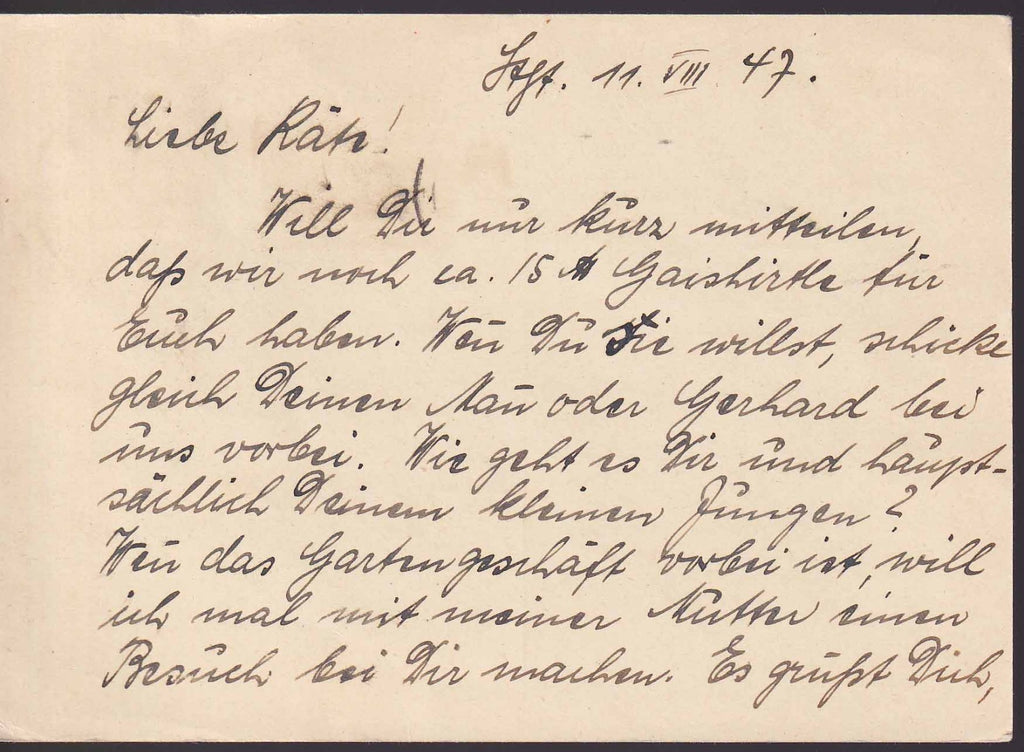 Stgt. 11. VIII 47.
Liebe Käte!
Will Dir nur kurz mitteilen,
daß wir noch ca. 15 ℔ Gaishirtle für
Euch haben. Weñ Du sie willst, schicke
gleich Deinen Mañ oder Gerhard bei
uns vorbei. Wie geht es Dir und haupt-
sächlich Deinem kleinen Jungen?
Weñ das Gartengeschäft vorbei ist, will
ich mal mit meiner Mutter einen
Besuch bei Dir machen. Es grüßt Dich,